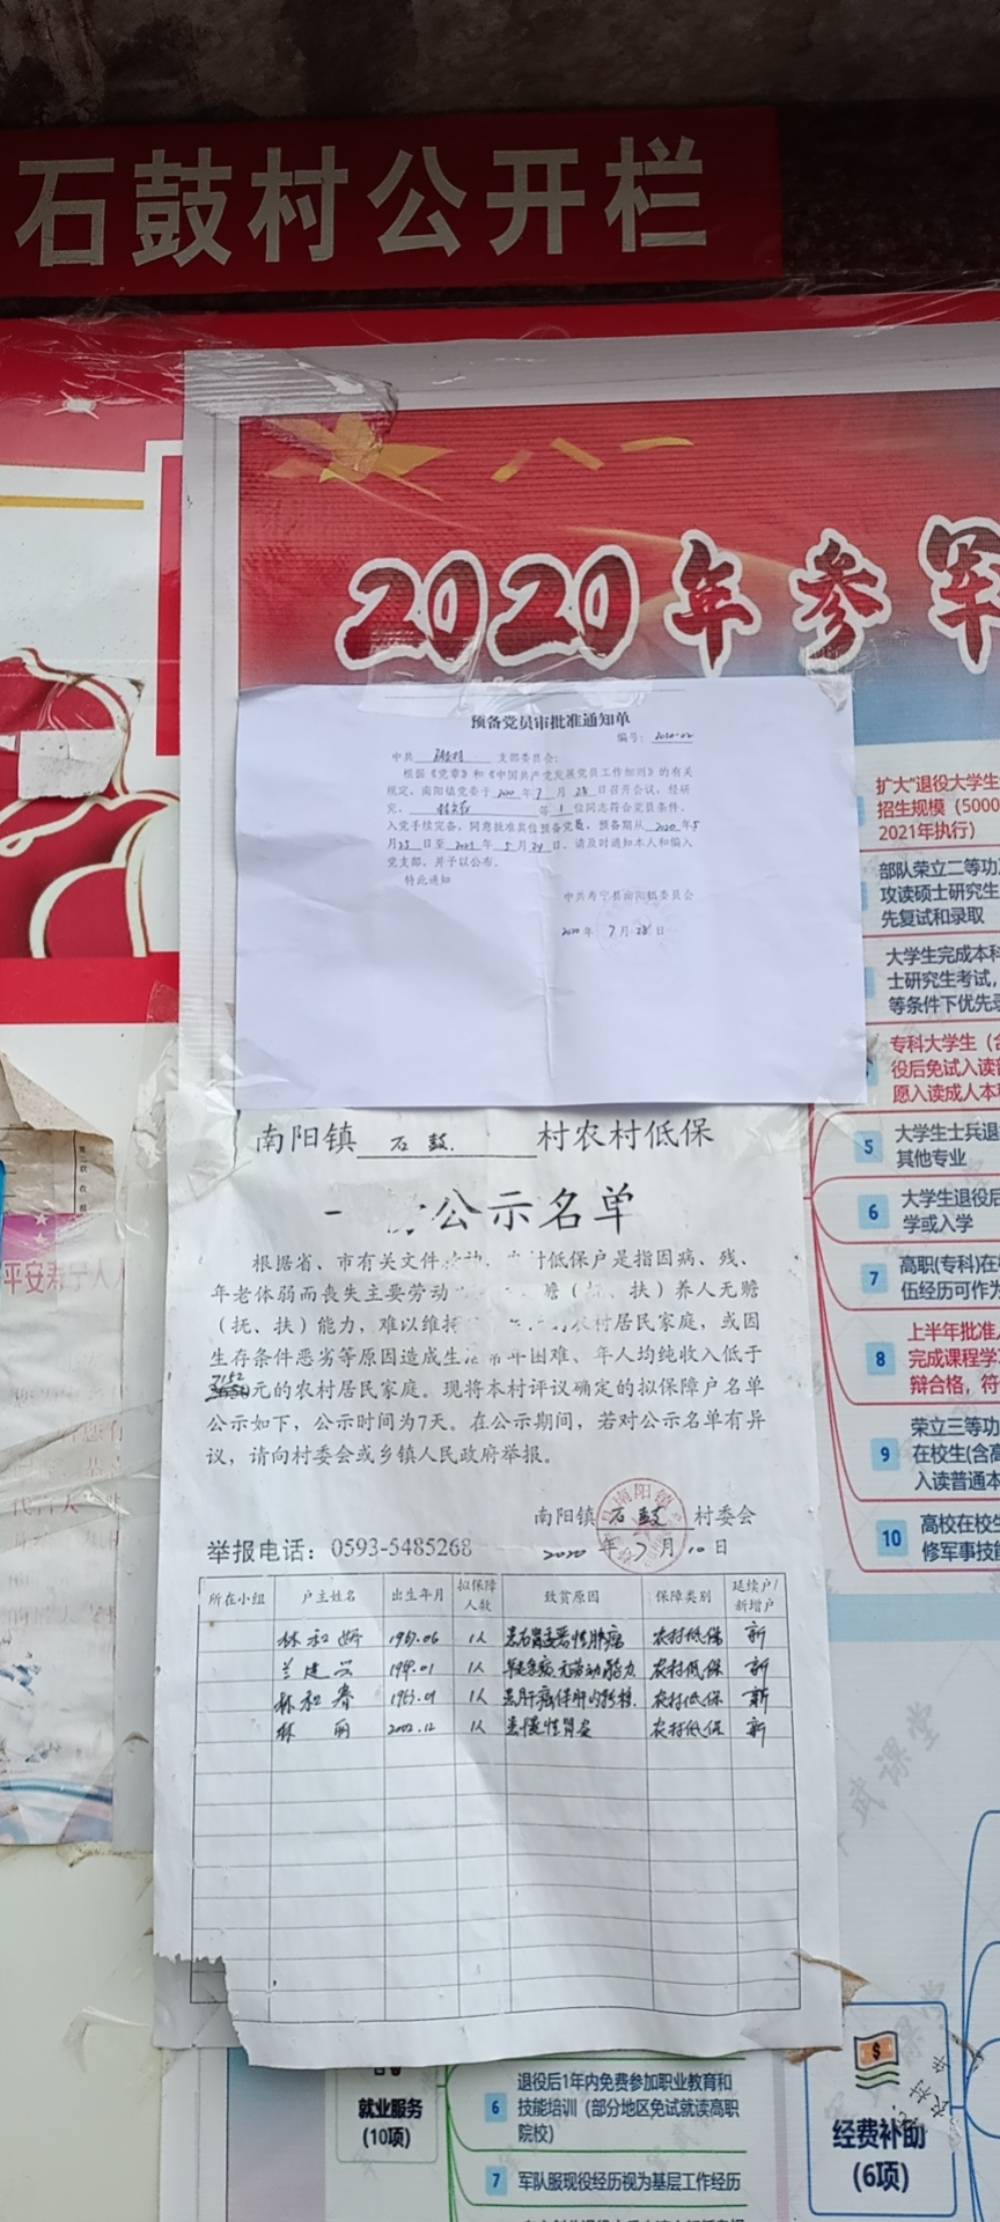 石鼓村公开栏
2020年参军
预备党员审批准通知单
编号：2020-02
中共 石鼓村 支部委员会：
根据《党章》和《中国共产党发展党员工作细则》的有关
规定，南阳镇党委于2020年7月28日召开会议，经研
究，等1位同志符合党员条件，
入党手续完备，同意批准其位预备党员，预备期从2020年5
月25日至2021年5月24日，请及时通知本人和编入
党支部，并予以公布。
特此通知
中共寿宁县南阳镇委员会
2020年7月28日
南阳镇 石鼓 村农村低保
公示名单
根据省、市有关文件 村低保户是指因病、残、
年老体弱而丧失主要劳动 赡（抚、扶）养人无赡
（抚、扶）能力，难以维持 农村居民家庭，或因
生存条件恶劣等原因造成生活常年困难、年人均纯收入低于
7152元的农村居民家庭。现将本村评议确定的拟保障户名单
公示如下，公示时间为7天。在公示期间，若对公示名单有异
议，请向村委会或乡镇人民政府举报。
南阳镇 石鼓 村委会
举报电话：0593-5485268 2020年7月10日
所在小组 户主姓名 出生年月 拟保障人数 致贫原因 保障类别 延续户/新增户
林和 1967.06 1人 恶性肿瘤 农村低保 新
兰建兴 01 1人 无劳动能力 农村低保 新
林和春 1963.01 1人 患肝癌伴肝内转移 农村低保 新
林丽 2002.12 1人 患慢性肾炎 农村低保 新
扩大“退役大学生
招生规模（5000
2021年执行）
部队荣立二等功
攻读硕士研究生
先复试和录取
大学生完成本科
士研究生考试，
等条件下优先录
专科大学生（含
役后免试入读
愿入读成人本科
5 大学生士兵退
其他专业
6 大学生退役后
学或入学
7 高职(专科)在
伍经历可作为
8 上半年批准
完成课程学
辩合格，符
9 荣立三等功
在校生(含高
入读普通本
10 高校在校生
修军事技能
平安寿宁人人
就业服务
(10项)
6 退役后1年内免费参加职业教育和
技能培训（部分地区免试就读高职
院校）
7 军队服现役经历视为基层工作经历
经费补助
(6项)